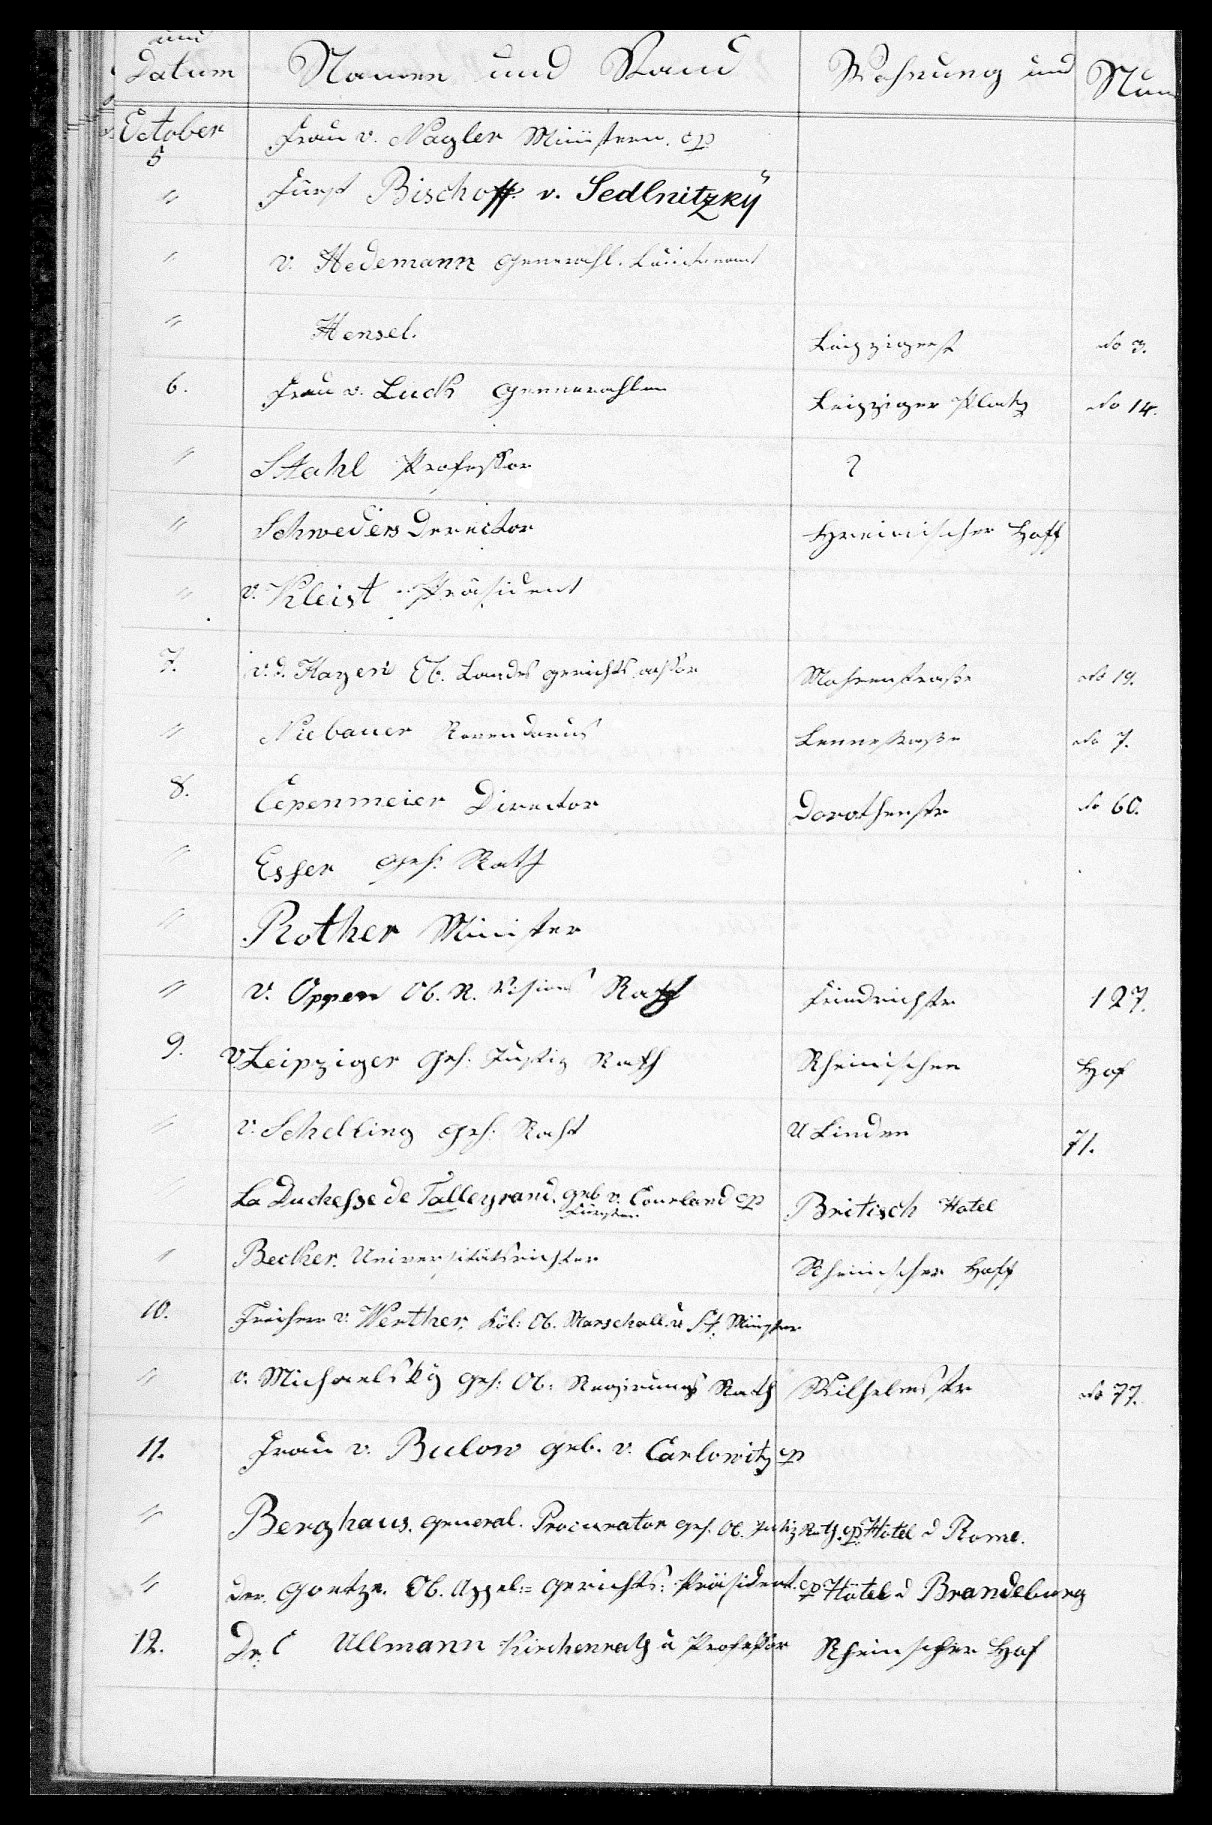 und
Datum Namen und Stand Wohnung und Num
October
5 Frau v. Nagler Ministern. cp
" Fürst Bischoff v. Sedlnitzky
" v. Hedemann Generahl. Läutenant
" Hensel. Leipzigerst No 3.
6. Frau v. Luck Gennerahlen Leipziger Platz No 14.
" Stahl Professor ?
" Schweders Derector Hreinischer Hoff
" v. Kleist Präsident
7. v. d. Hagen Ob. Landes gerichts assor Mohrenstraße No 19.
" Niebauer Refendarius Lennestraße No 7.
8. Eepenmeier Director Dorothenstr No 60.
" Esser Geh: Rath
" Rother Minister
" v. Oppen Ob. R. Rath Friedrichstr 127.
9. v. Leipziger Geh: Justiz Rath Rheinischen Hof
" v. Schelling Geh. Raht U Linden 71.
" La Duchesse de Talleyrand. geb v. Courland cp Britisch Hotel
Fürsten
" Becker. Universitätsrichter Rheinischer Hoff
10. Freiherr v. Werther, Köl: Ob. Marschall. u St. Minster
" v. Michaelsky Geh: Ob: Regirungs Rath Wilhelmstr No 77.
11. Frau v. Bulow geb. v. Carlowitz cp
" Berghaus. General. Procurator Geh. Ob. Justiz Rath. cp. Hotel d Rome.
" der. Goetze. Ob. Appel:= Gerichts: Präsident. cp Hotel d Brandeburg
12. Dr. C Ullmann Kirchenrath u Professor Rheinscher Hof